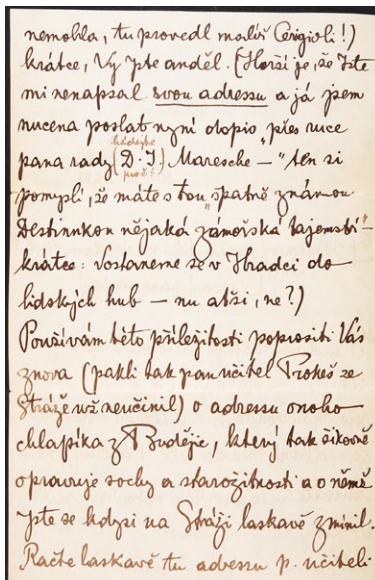 nemohla, tu provedl malíř Cerigioli!)
krátce, Vy jste anděl. (Horší je, že Jste
mi nenapsal svou adressu a já jsem
nucena poslat nyní dopis „přes ruce
hádejte
pana rady (D. I.) Maresche – "ten si
proč?
pomyslí, že máte s tou „špatně známou
Destinnkou nějaká zámořská tajemství –
krátce: Dostaneme se v Hradci do
lidských hub – nu atsi, ne?)
Používám této příležitosti poprositi Vás
znova (pakli tak pan učitel Prokeš ze
Stráže už neučinil) o adressu onoho
chlapíka z Budějic, který tak šikovně
opravuje sochy a starožitnosti a o němž
jste se kdysi na Stráži laskavě zmínil.
Račte laskavě tu adressu p. učiteli